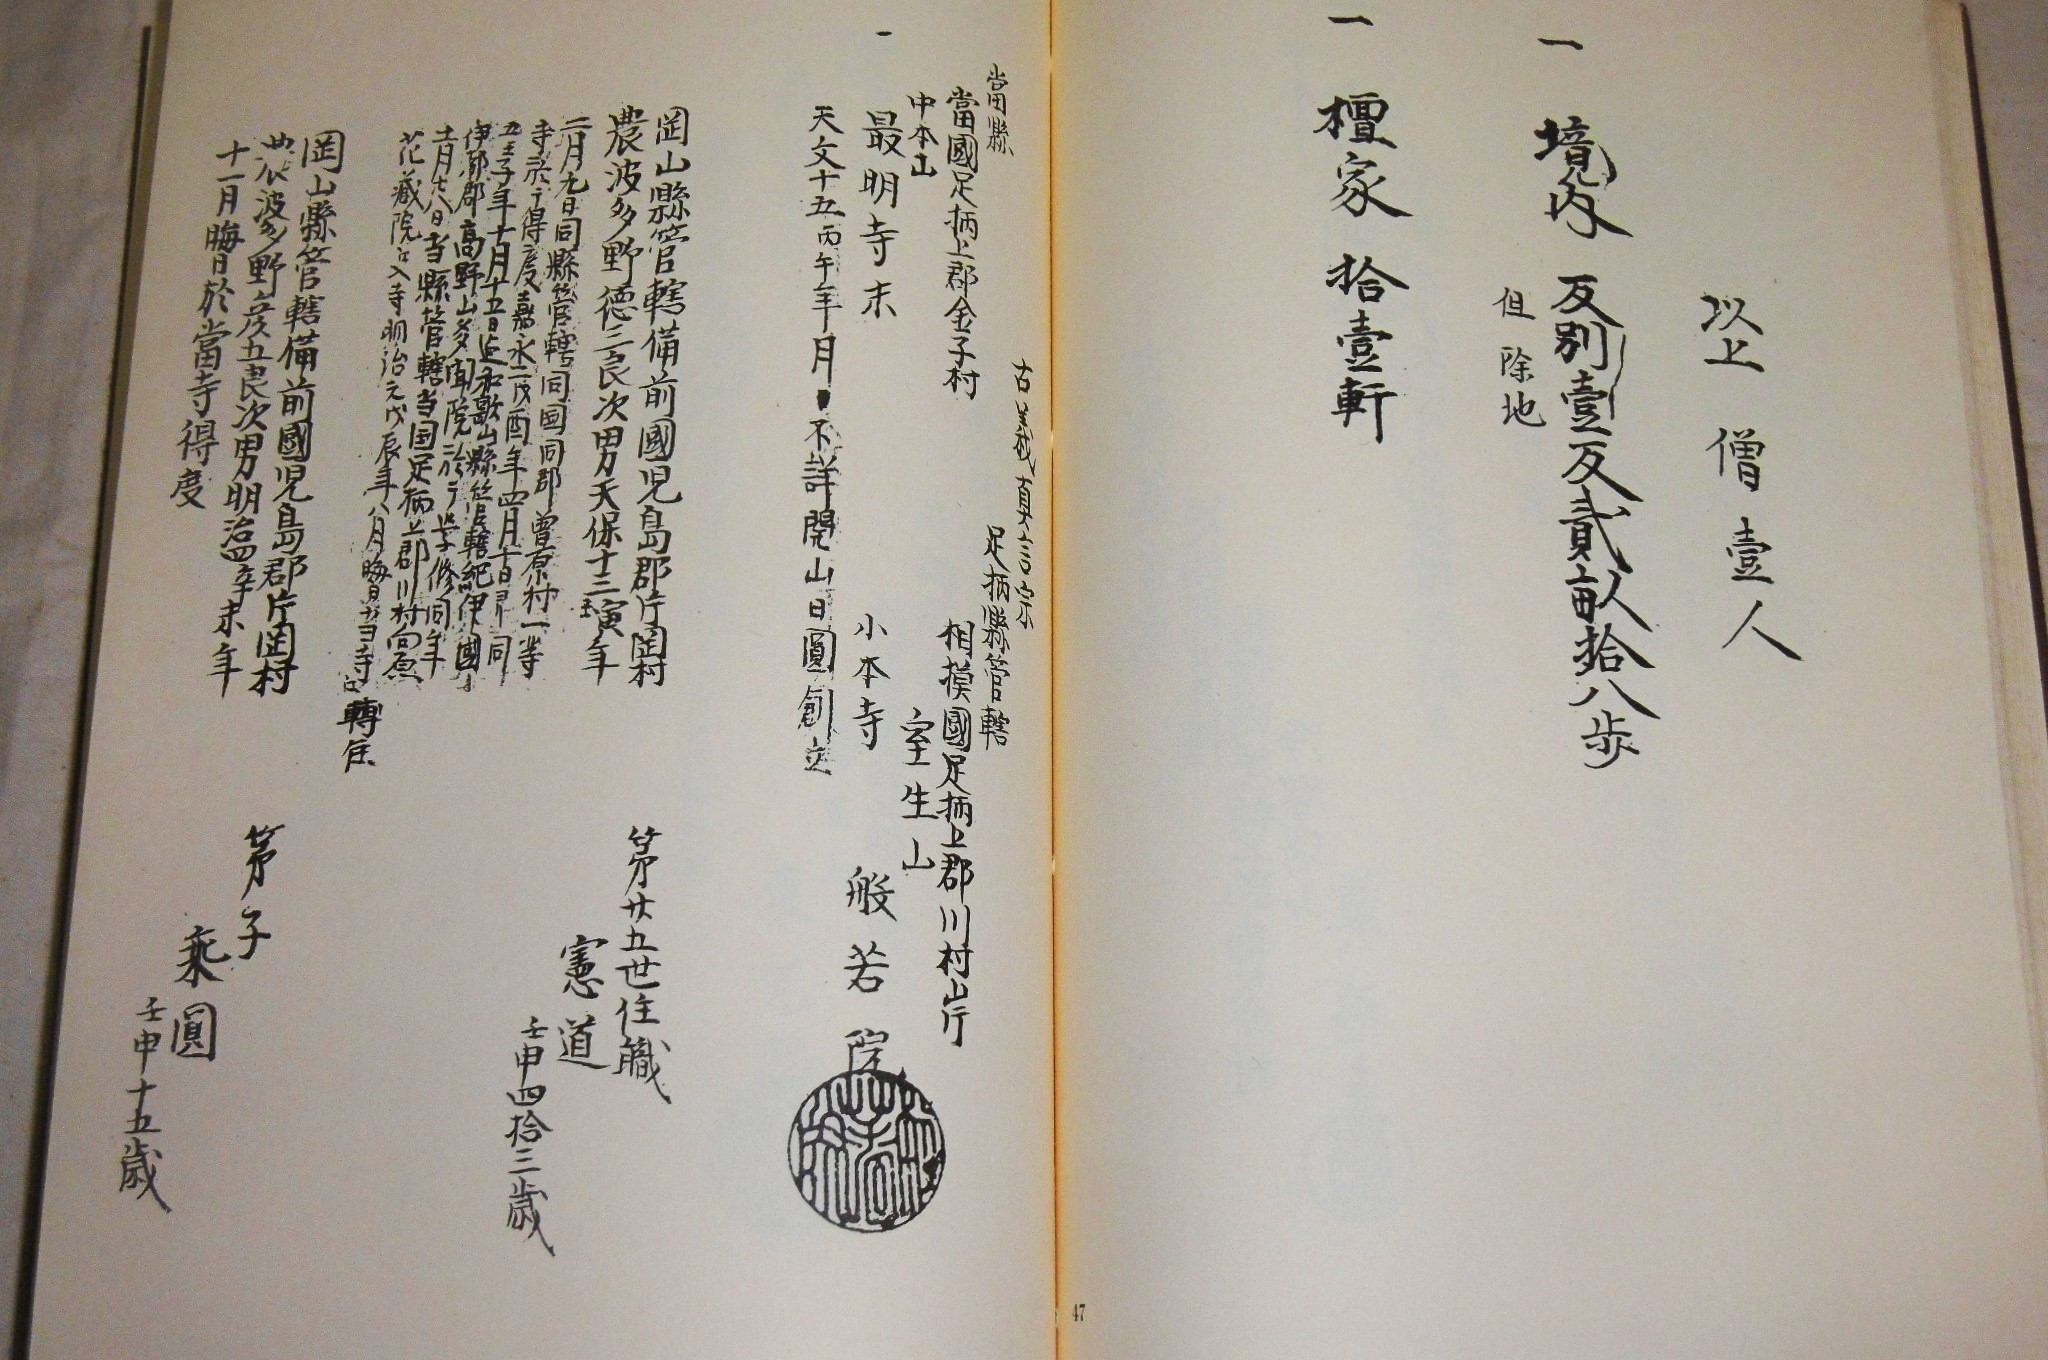 以上 僧壹人
一 境内 反別壹反貳畝拾八歩
但 除地
一 檀家 拾壹軒
47
古義真言宗
當縣
足柄縣管轄
當國足柄上郡金子村
相摸國足柄上郡川村山岸
中本山
室生山
一 最明寺末 小本寺 般若院
天文十五丙午年月不詳開山日圓創立
岡山縣管轄備前國児島郡片岡村
農波多野徳三良次男天保十三寅年
二月九日同縣管轄同国同郡曽原村一等
寺ニ於テ得度嘉永二酉年四月十日同
五壬子年十月十五日和歌山縣管轄紀伊國
伊都郡高野山多聞院ニ於テ学修同年
月廿八日当縣管轄当国足柄上郡川村向原
花藏院江入寺明治元戊辰年八月晦日当寺江轉住
第廿五世住職
憲道
壬申四拾三歳
岡山縣管轄備前國児島郡片岡村
農波多野彦五良次男明治四辛未年
十一月晦日於當寺得度
弟子
乘圓
壬申十五歳